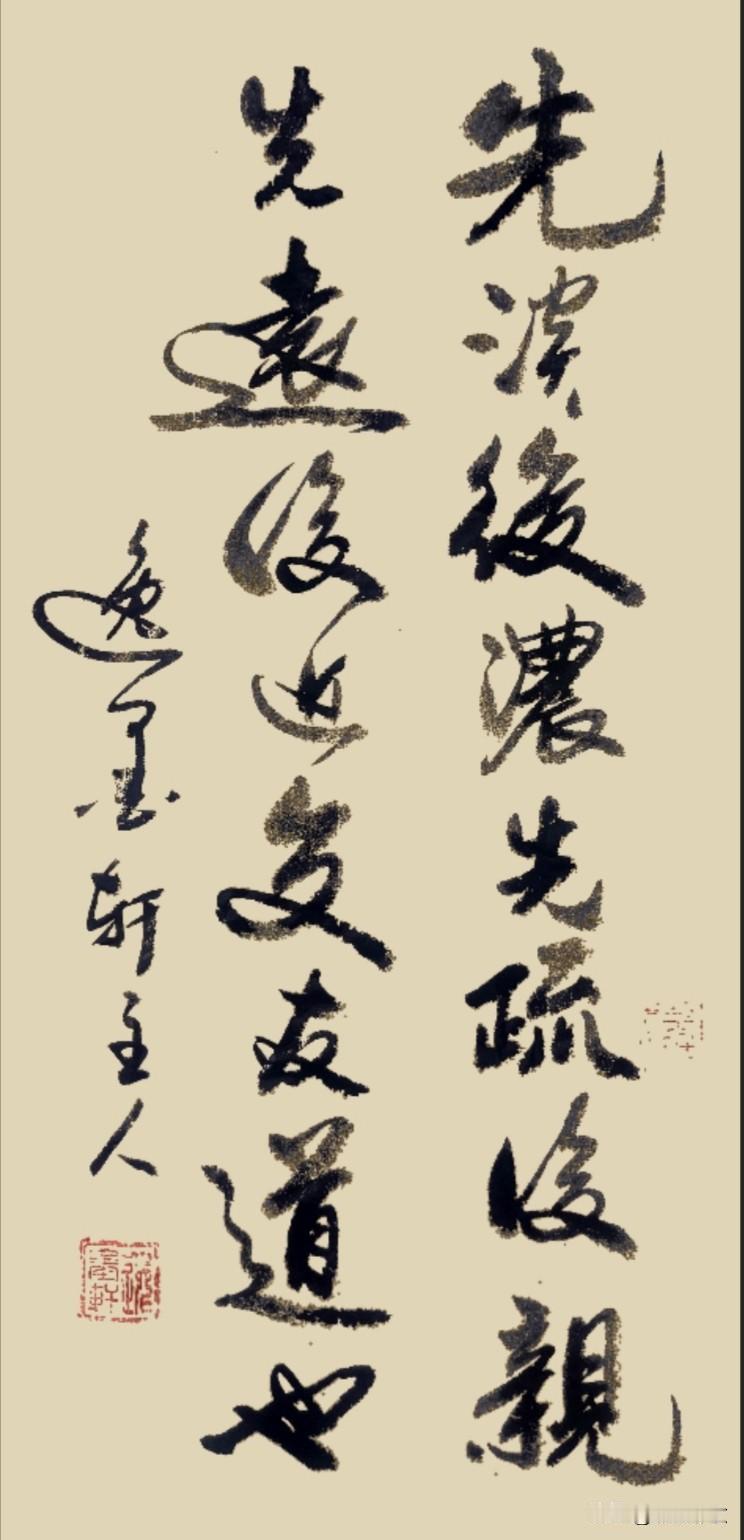 先淡後濃先疏後親
先遠後近交友道也
逸墨軒主人